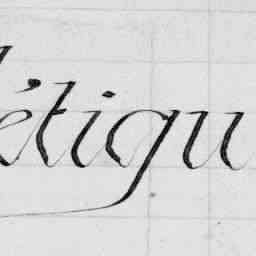 étiqu